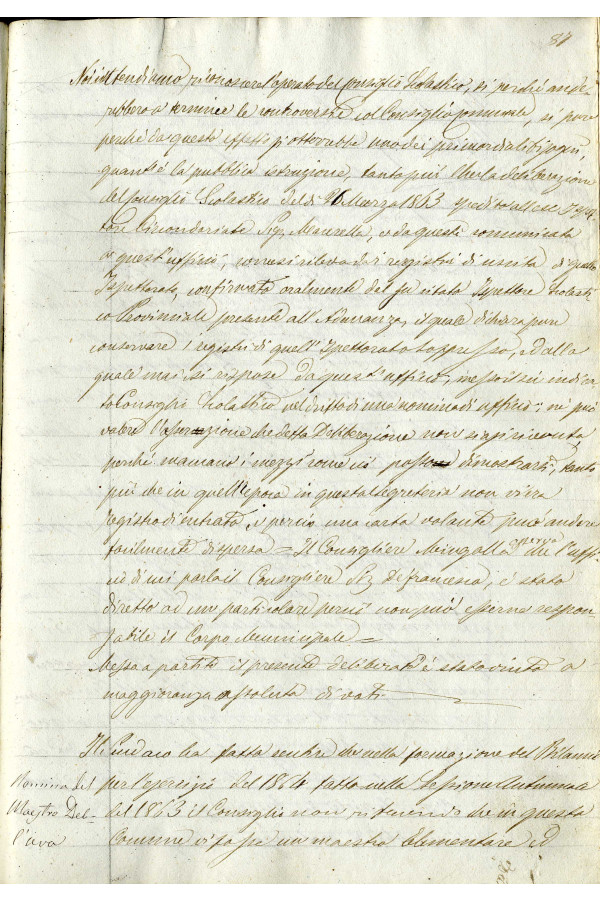 87
Noi intendiamo riconoscere l'operato del Consiglio Scolastico, si perché andreb
rebbero a terminare le controversie col Consiglio comunale, si pure
perché da questi effetti si otterrebbe uno dei primordiali bisogni,
quant'è la pubblica istruzione, tanto più che la deliberazione
del Consiglio Scolastico del dì 26 Marzo 1863 spedito all' Ispet
tore Circondariale Sig. Maurella, e da questi comunicata
a quest'ufficio, come si rileva dai registri di uscita di quello
Ispettorato, confirmato oralmente dal fu citato Ispettore Scolasti
co Provinciale presente all'Adunanza, il quale dichiara pure
conservare i registri di quell'Ispettorato soppresso, ed alla
quale mai si rispose da quest'ufficio, messosi indica
to Consiglio Scolastico nel dritto di una nomina di ufficio; ne può
valere l'asserzione che detta Deliberazione non siasi ricevuta
perché mancano i mezzi come ciò possa dimostrarsi, tanto
più che in quell'epoca in questa segreteria non vi era
registro di entrata, e perciò una carta volante può andare
facilmente dispersa = Il Consigliere Mingalla osserva che l'uffi
cio di cui parla il Consigliere Sig. Defrancesca, è stato
diretto ad un particolare perciò non può esserne respon-
sabile il Corpo Municipale =
Messo a partito il presente deliberato è stato vinto a
maggioranza assoluta di voti.
Il Sindaco ha fatto sentire che nella formazione del Bilancio
per l'esercizio del 1864 fatto nella Sessione Autunnale
del 1863 il Consiglio non ritenendo che in questa
Comune vi fosse un maestro Elementare ed
Nomina del
Maestro Del-
l'uva